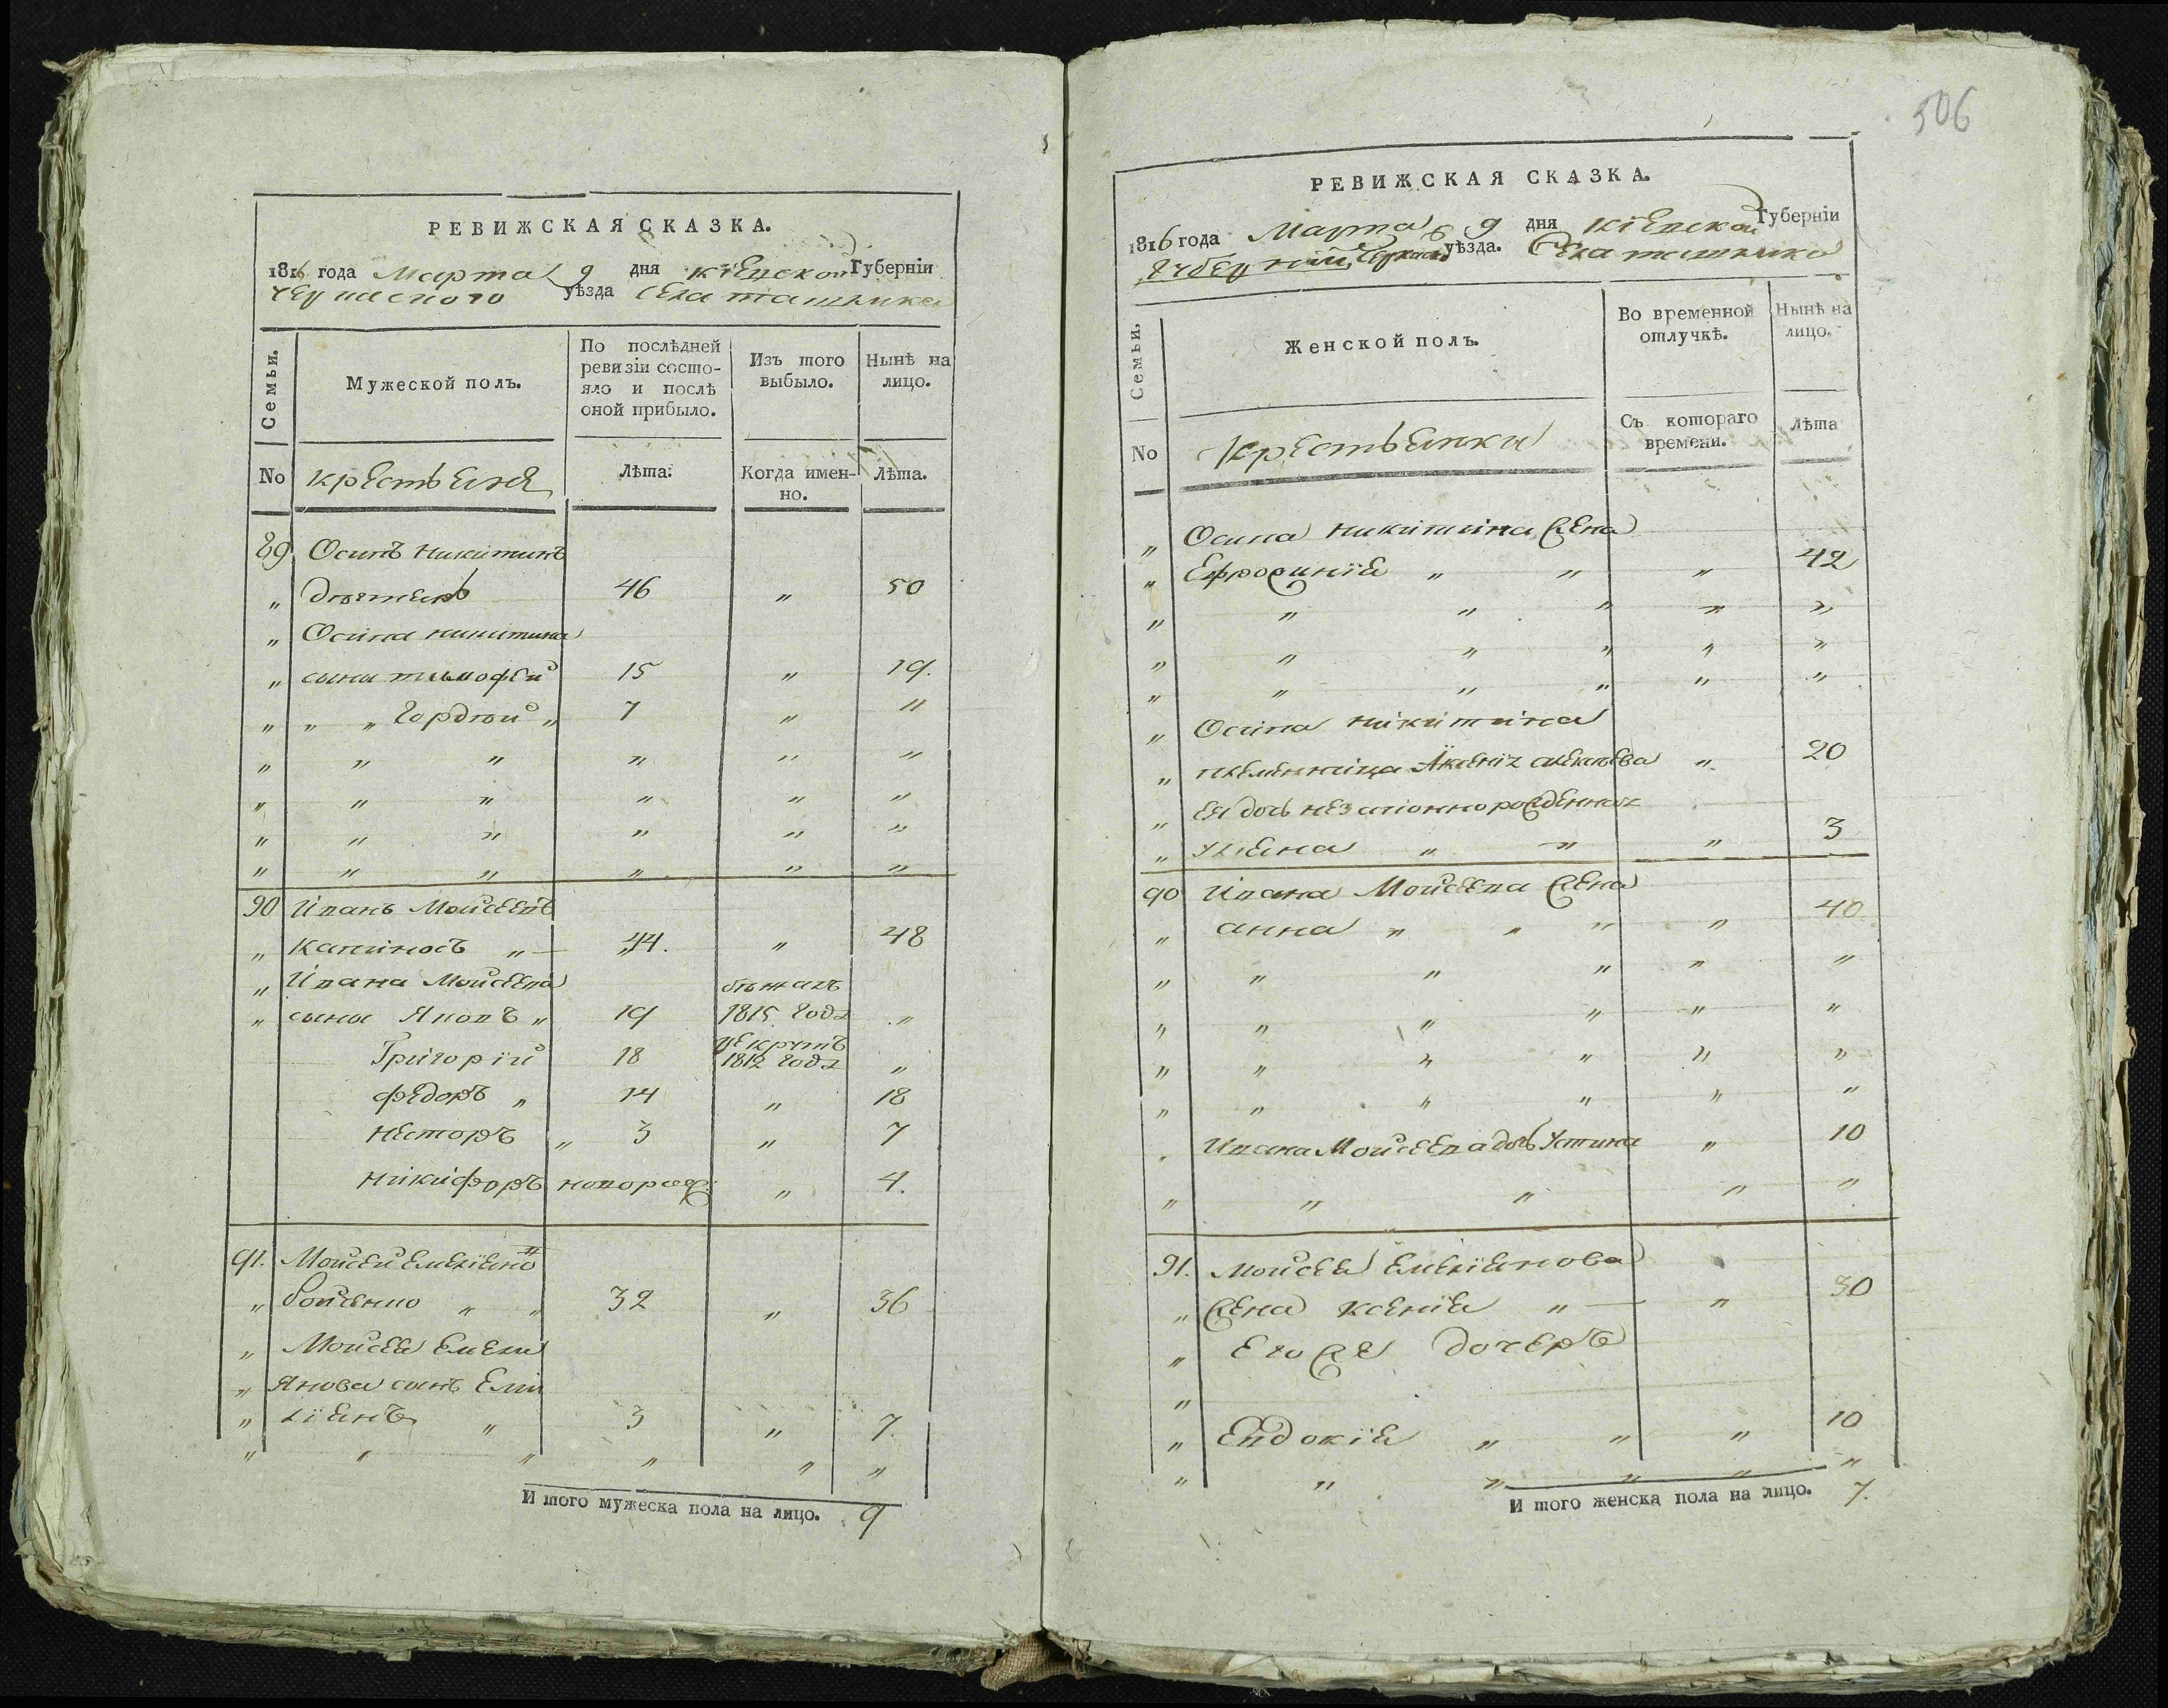 РЕВИЖСКАЯ СКАЗКА.
1816 года Марта 9 дня Кіевской Губерніи
Черкаского уѣзда Села ташлика
Семьи. Мужеской полъ. По послѣдней ревизіи состояло и послѣ оной прибыло. Изъ того выбыло. Нынѣ на лицо.
No крестьяня Лѣта. Когда именно. Лѣта.
89 Осипъ никитинъ
„ 46 „ 50
„ Осипа никитина
„ сыни тимофей 15 „ 19.
„ „ „ Гордѣй „ 7 „ „
„ „ „ „ „ „
„ „ „ „ „ „
„ „ „ „ „ „
„ „ „ „ „ „
90 Иванъ Мойсеевъ
„ „ 44. „ 48
„ Ивана Мойсеева бѣжалъ
„ сыны Яковъ „ 19 1815 года „
Григорій 18 рекрутъ 1812 года „
федоръ „ 14 „ 18
несторъ „ 3 „ 7
никифоръ новорож: „ 4.
91. Мойсей емеліяно
„ „ „ 32 „ 36
„ Мойсея емели
„ янова сынъ Еми
„ ліянъ „ 3 „ 7.
„ „ „ „ „ „
И того мужеска пола на лицо. 9
506
РЕВИЖСКАЯ СКАЗКА.
1816 года Марта 9 дня Кіевской Губерніи
уѣзда. Села ташлика
Семьи. Женской полъ. Во временной отлучкѣ. Нынѣ на лицо.
No крестьянки Съ котораго времени. Лѣта
„ Осипа никитина жена
„ Ефросинія „ „ „ 42
„ „ „ „ „ „
„ „ „ „ „ „
„ „ „ „ „ „
„ Осипа никитина
„ племенница „ 20
„ ея дочь незаконнорожденная
„ улияна „ „ „ 3
90 Ивана Мойсеева жена
„ анна „ „ „ „ 40
„ „ „ „ „ „
„ „ „ „ „ „
„ „ „ „ „ „
„ „ „ „ „ „
„ Ивана Мойсеева дочь Устина „ 10
„ „ „ „ „
91. Мойсея емеліянова
„ жена ксенія „ „ 30
„ Его же дочеръ
„
„ Евдокія „ „ „ 10
„ „ „ „ „ „
И того женска пола на лицо. 7.